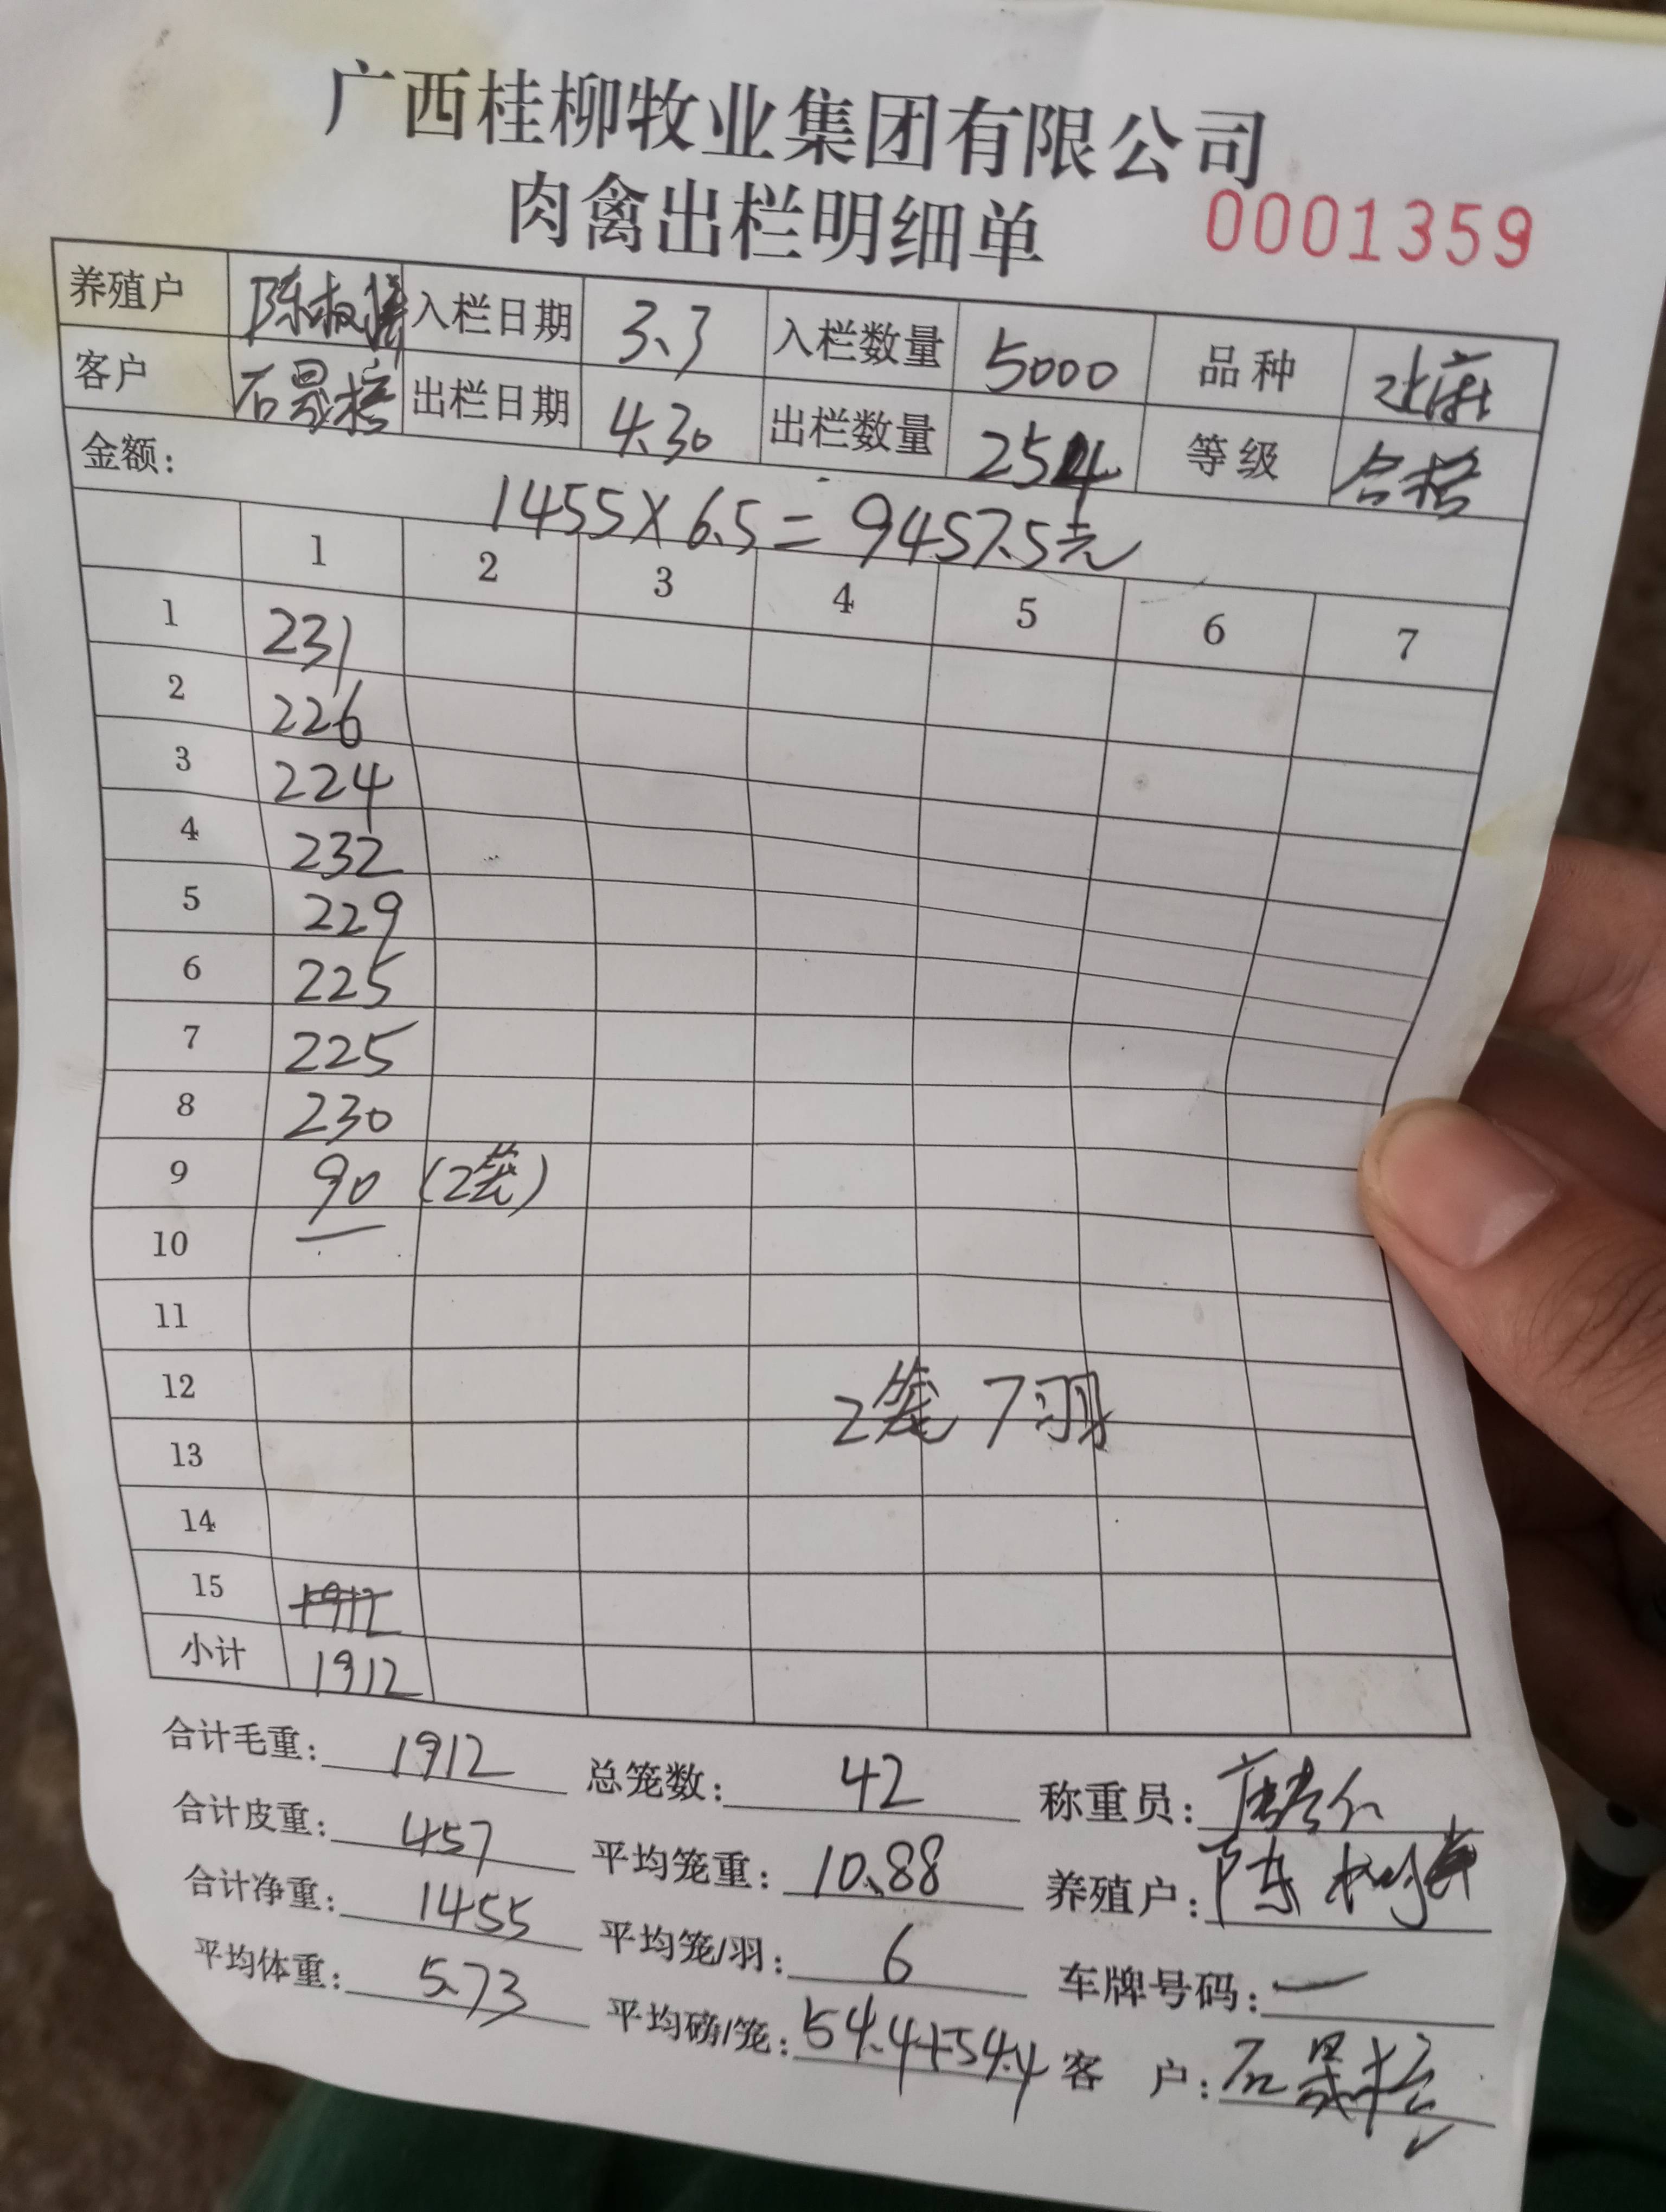 广西桂柳牧业集团有限公司
肉禽出栏明细单 0001359
养殖户 陈 入栏日期 3.3 入栏数量 5000 品种
客户 石 出栏日期 4.30 出栏数量 254 等级 合格
金额: 1455×6.5=9457.5元
1 2 3 4 5 6 7
1 231
2 226
3 224
4 232
5 229
6 225
7 225
8 230
9 90 (2笼)
10
11
12 2笼7羽
13
14
15 1912
小计 1912
合计毛重: 1912 总笼数: 42 称重员:
合计皮重: 457 平均笼重: 10.88 养殖户: 陈
合计净重: 1455 平均笼/羽: 6 车牌号码: 一
平均体重: 5.73 平均磅/笼: 54.4+54.4 客 户: 石